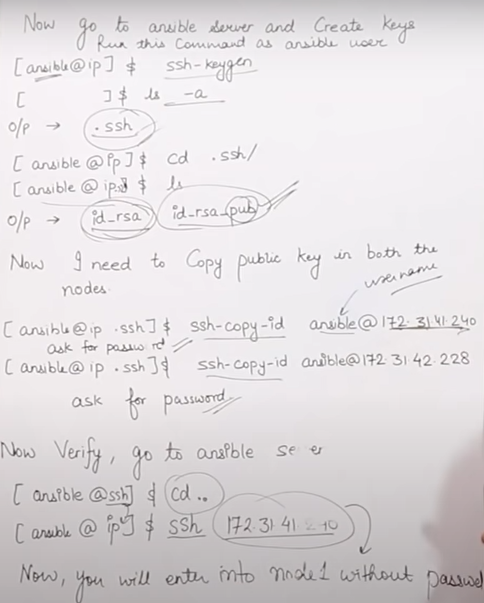 Now go to ansible server and Create keys
Run this Command as ansible user
[ansible@ip] $ ssh-keygen
[ ]$ ls -a
o/p → .ssh
[ansible@ip]$ cd .ssh/
[ansible@ip]$ ls
o/p → id_rsa id_rsa_pub
Now I need to Copy public key in both the
nodes.
username
[ansible@ip .ssh]$ ssh-copy-id ansible@172.31.41.240
ask for password
[ansible@ip .ssh]$ ssh-copy-id ansible@172.31.42.228
ask for password
Now Verify, go to ansible se er
[ansible@ssh] $ cd ..
[ansible@ip]$ ssh 172.31.41.240
Now, you will enter into node1 without passwd